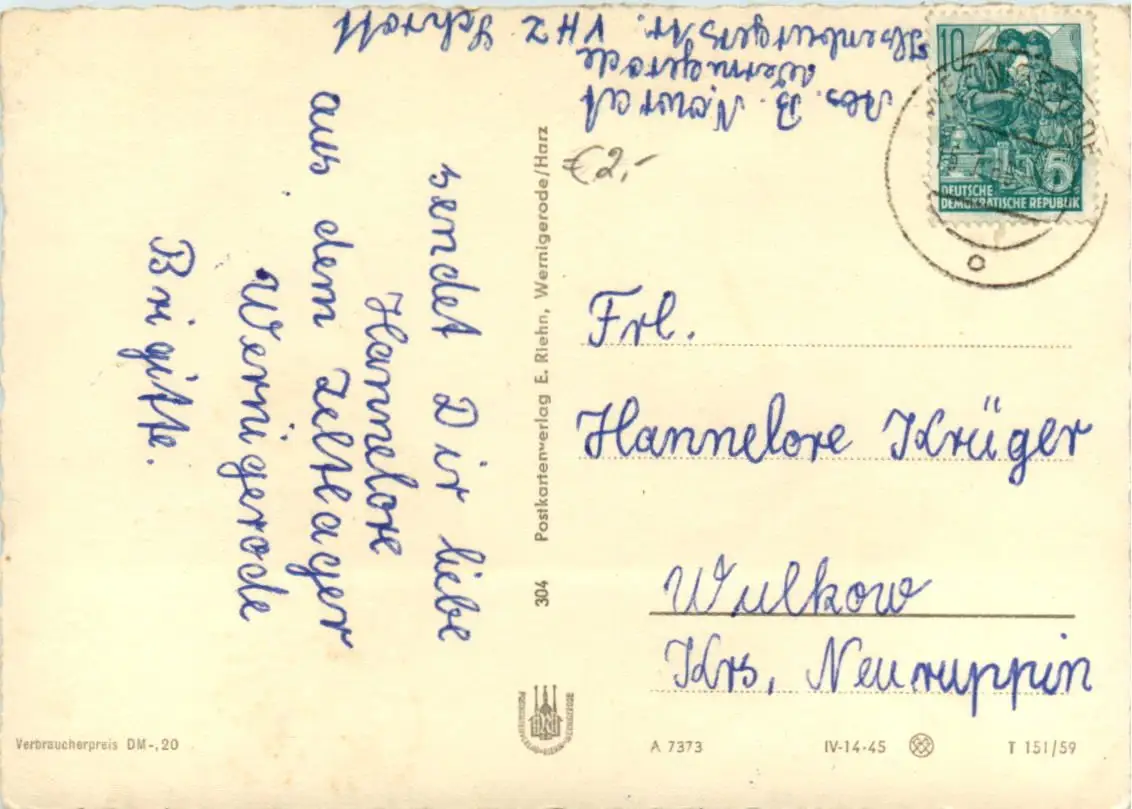 sendet Dir liebe
Hannelore
aus dem Zeltlager
Wernigerode
Brigitte.
Abs. B. Nawrat
Wernigerode
Ilsenburgerstr. VHZ Schrott
€2,-
10
6
DEUTSCHE
DEMOKRATISCHE REPUBLIK
Frl.
Hannelore Krüger
Wulkow
Krs, Neuruppin
304 Postkartenverlag E. Riehn, Wernigerode/Harz
Verbraucherpreis DM-,20
A 7373
IV-14-45
T 151/59